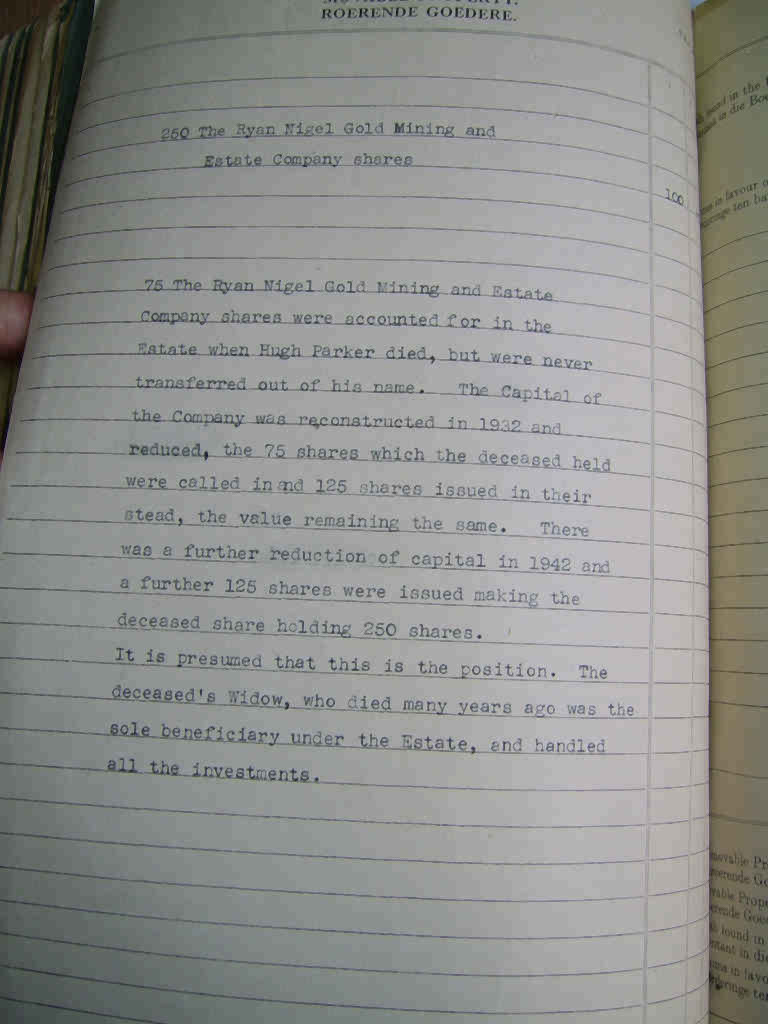 ROERENDE GOEDERE.
250 The Ryan Nigel Gold Mining and
Estate Company shares
100
75 The Ryan Nigel Gold Mining and Estate
Company shares were accounted for in the
Estate when Hugh Parker died, but were never
transferred out of his name. The Capital of
the Company was reconstructed in 1932 and
reduced, the 75 shares which the deceased held
were called in and 125 shares issued in their
stead, the value remaining the same. There
was a further reduction of capital in 1942 and
a further 125 shares were issued making the
deceased share holding 250 shares.
It is presumed that this is the position. The
deceased's Widow, who died many years ago was the
sole beneficiary under the Estate, and handled
all the investments.
found in the
in die
in favour
ten
found in
in die
in